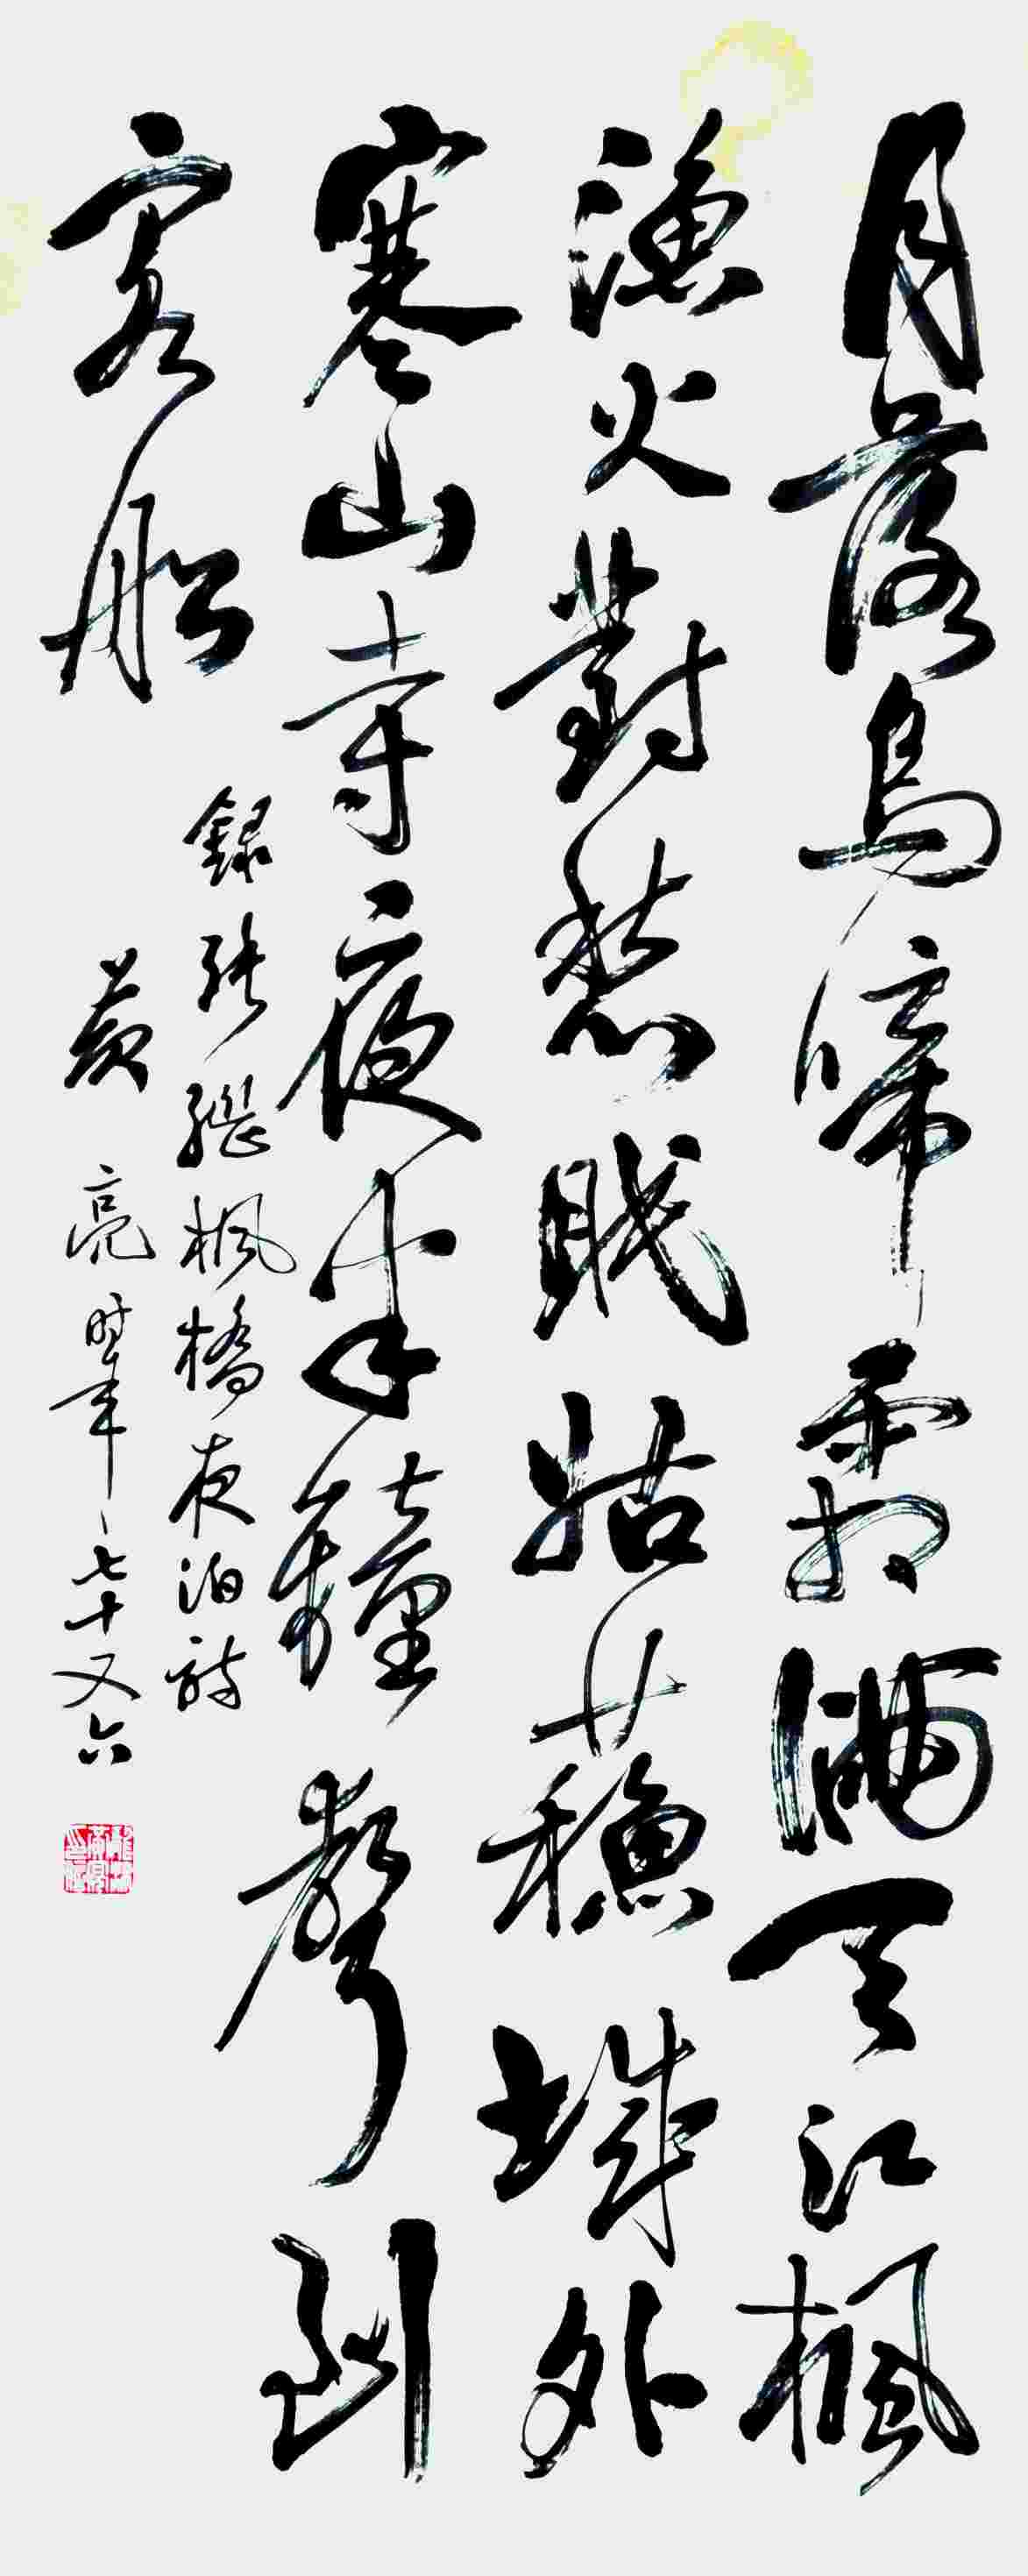 月落烏啼霜滿天江楓
漁火對愁眠姑蘓城外
寒山寺夜半鐘聲到
客船
錄張繼楓橋夜泊詩
黄亮时年七十又六